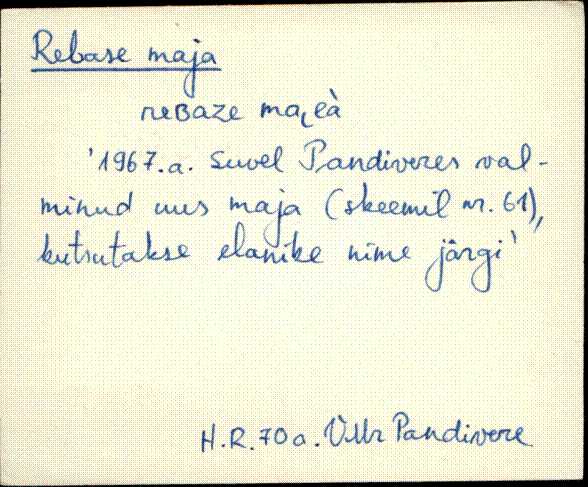 Rebase maja
reʙaze mai̯eà
'1967.a. suvel Pandiveres val-
minud uus maja (skeemil nr. 61),
kutsutakse elanike nime järgi'
H.R.70 a. VMr Pandivere